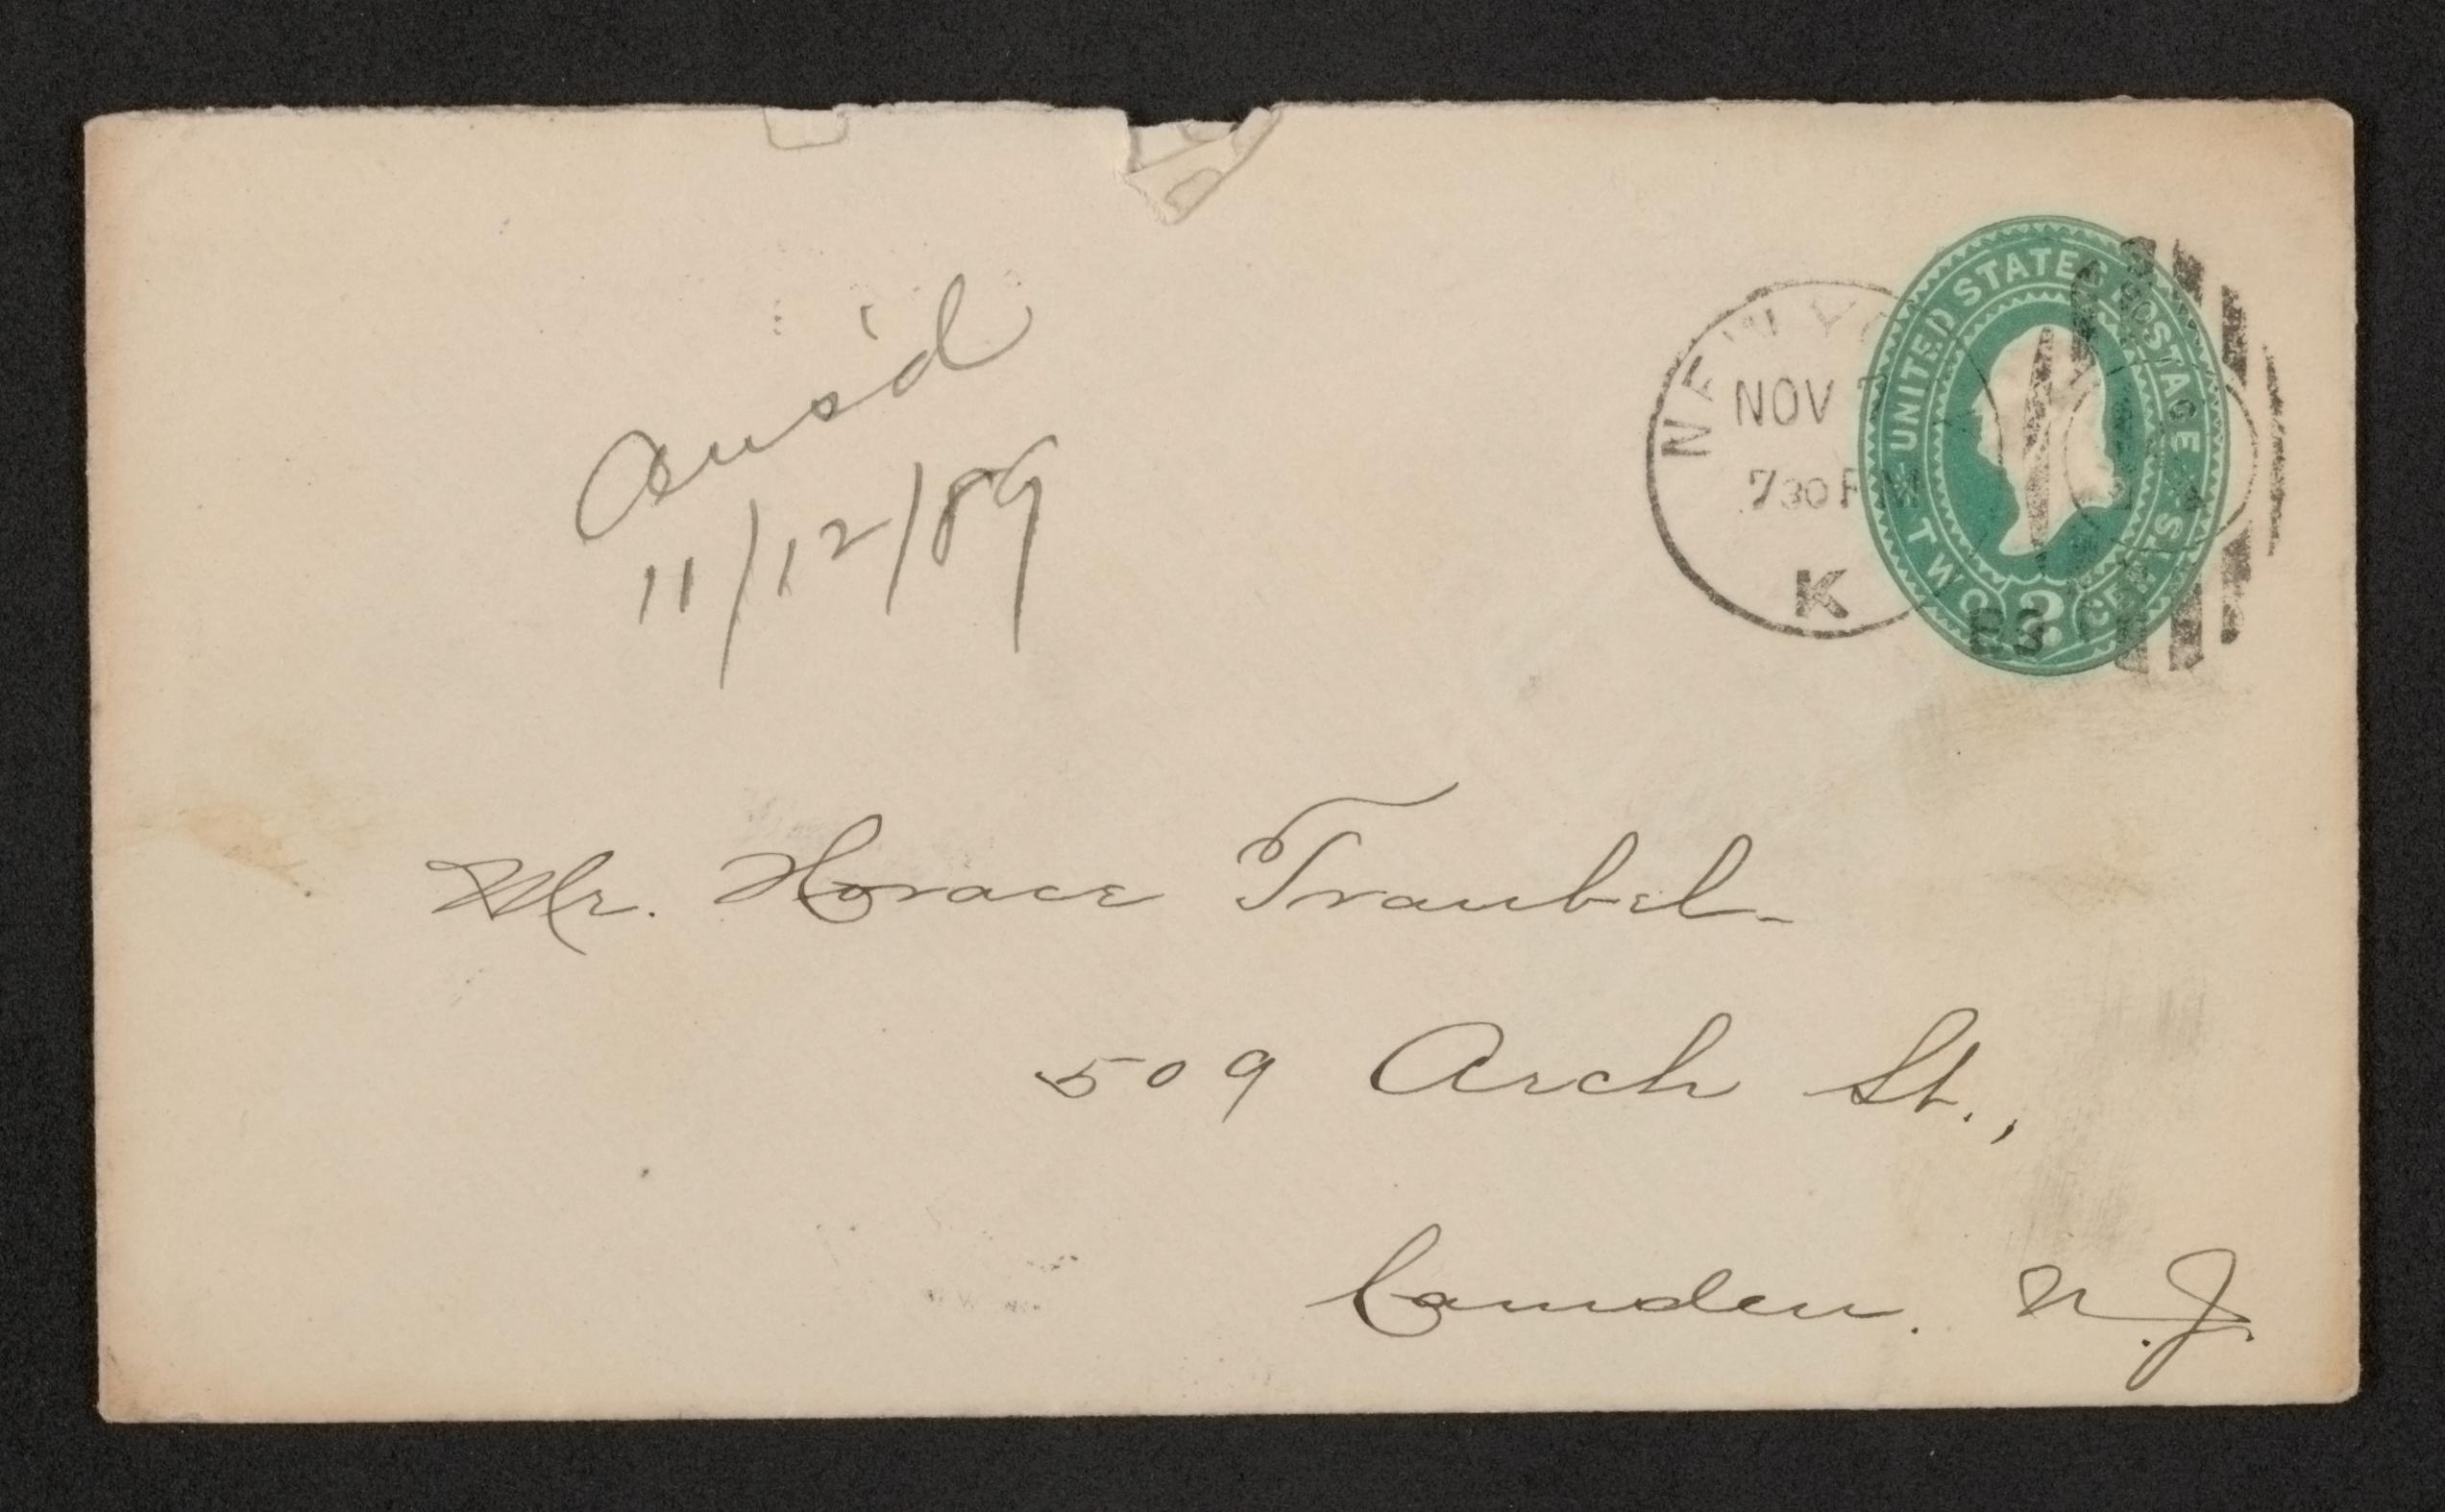 Ans'd
11/12/89
NEW YO
NOV
730 PM
K
UNITED STATES POSTAGE
TWO CENTS
2
Mr. Horace Traubel
509 Arch St.,
Camden. N.J.